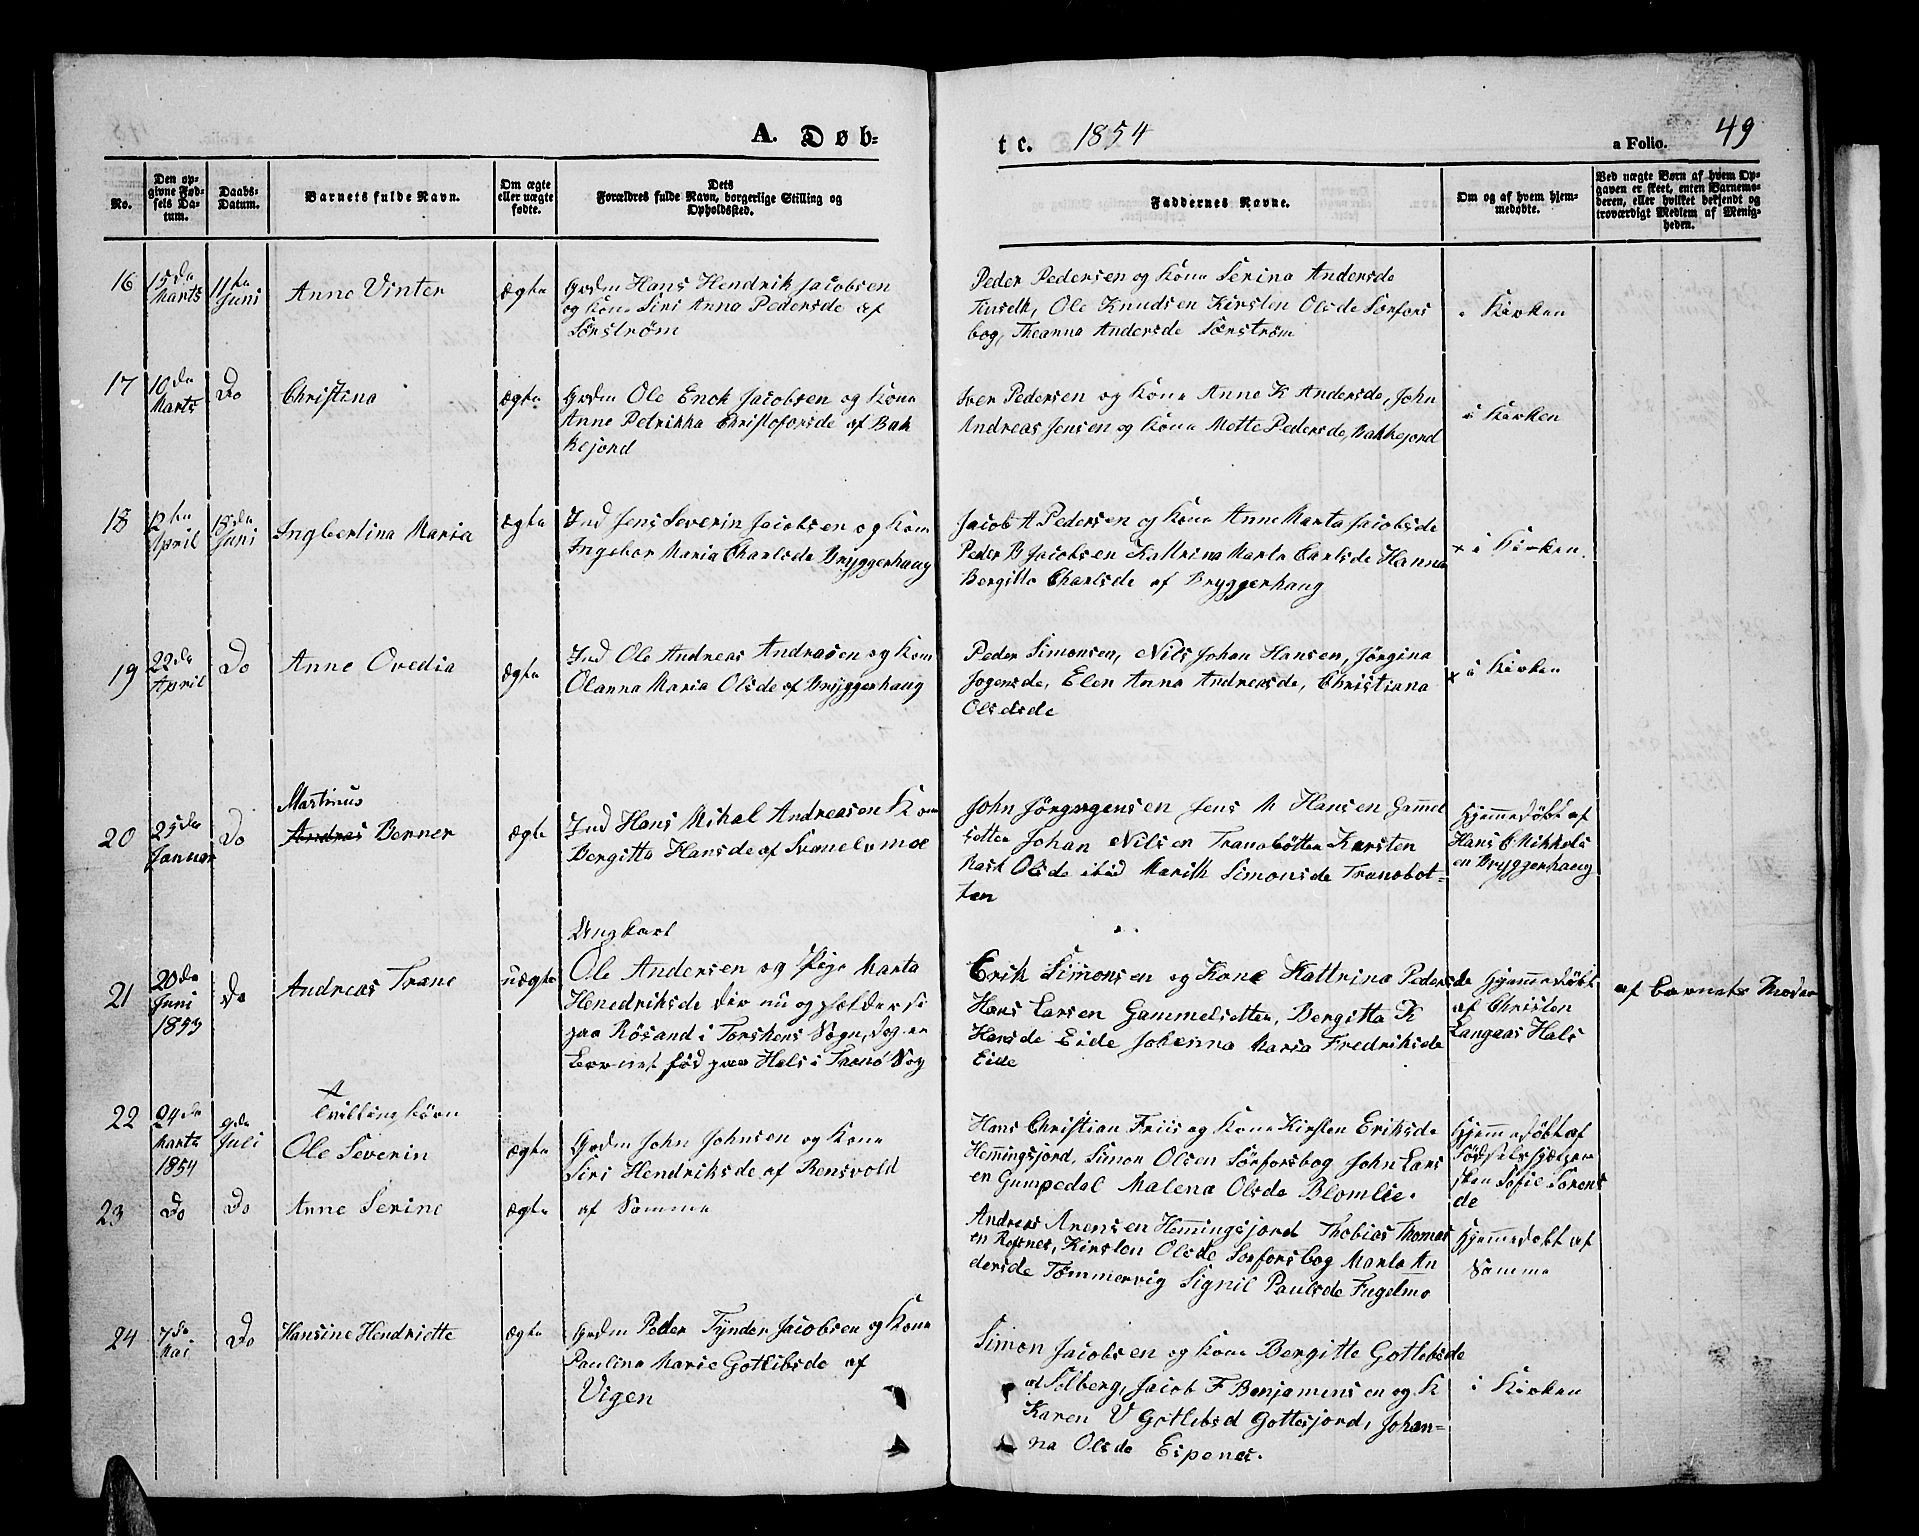 A. Døb-
te. 1854
a Folio. 49
No.
Den op-
givne Fød-
sels Da-
tum.
Daabs-
Datum.
Barnets fulde Navn.
Om ægte
eller uægte
fødte.
Dets
Forældres fulde Navn, borgerlige Stilling og
Opholdssted.
Faddernes Navne.
Om og af hvem hjem-
medøbte.
Ved uægte Børn af hvem Op-
gaven er skeet, enten Barnemo-
deren, eller hvilket bekjendt og
troværdigt Medlem af Menig-
heden.
16
15de
Marts
11te
Juni
Anne Vinter
ægte
Grdm Hans Hendrik Jacobsen
og Kone Siri Anna Pedersde af
Sørstrøm
Peder Pedersen og Kone Serina Andersde
Ole Knudsen Kirsten Olsde Sørfors
bog, Theanna Andersde Sørstrøm
i Kirken
17
10de
Marts
Do
Christina
ægte
Grdm Ole Enok Jacobsen og Kone
Anne Petrikka Christoforsde af Bak
kejord
Iver Pedersen og Kone Anne K Andersde, John
Andreas Jensen og Kone Mette Pedersde, Bakkejord
i Kirken
18
12te
April
18de
Juni
Ingbertina Maria
ægte
Ind Jens Severin Jacobsen og Kone
Ingebor Maria Charlsde Bryggerhaug
Jacob A Pedersen og Kone Anne Marta Jacobsde
Peder B Jacobsen Kattrina Marta Carlsde Hanna
Bergitte Charlsde af Bryggerhaug
x i Kirken
19
22de
April
Do
Anne Ovedia
ægte
Ind Ole Andreas Andrasen og Kone
Olanna Maria Olsde af Bryggerhaug
Peder Simonsen, Nils Johan Hansen, Jørgina
Jogensde, Elen Anna Andreasde, Christiana
Olsdsde
x i Kirken
20
25de
Januar
Do
Martinus
Andras Berner
ægte
Ind Hans Mikal Andreasen Kone
Bergitta Hansde af Svanelvmoe
John Jörgngensen Jens M Hansen Gammel
setten Johan Nilsen Tranobötten Karsten
Mast Olsde ibid Marith Simonsde Tranobot-
ten
Hjemmedøbt af
Hans C Mikkels
en Bryggerhaug
21
20de
Juni
1853
Do
Andreas Trane
uægte
Ungkarl
Ole Andersen og Pige Marta
Henedriksde der nu opholder si
paa Rösand i Torskens Sogn, dog er
Barnet född paa Hals i Tranö Sog
Erik Simonsen og Kone Kattrina Pedersde
Hans Larsen Gammelsetten, Bergitta K
Hansde Eide Johanna Maria Fredriksde
Eide
Hjemmedøbt
af Christen
Langaas Hals
af Barnets Moder
22
24de
Marts
1854
9de
Juli
Tvillingbørn
Ole Severin
ægte
Grdm John Johnsen og Kone
Siri Hendriksde af Rensvold
Hans Christian Friis og Kone Kirsten Eriksde
Hemmingsjord, Simon Olsen Sörforsbog John Lars
en Gumpedal Malena Olsde Blomlie.
Hjemmedøbt af
Födselshjælper
sken Sofie Sorens
de
23
Do
Do
Anne Serine
ægte
af Samme
Andreas Arensen Hemmingsjord Thobias Thomas
en Rofsnes, Kirsten Olsde Sorforsbog Marta An
dersde Tömmervig Signil Paulsde Fugelmo
Hjemmedøbt af
Samme
24
7de
Mai
Do
Hansine Hendriette
ægte
Grdm Peder Tynder Jacobsen og Kone
Paulina Marie Gotlibsde af
Vigen
Simon Jacobsen og Kone Bergitte Gotlebsde
af Solberg, Jacob F Benjaminsen og K
Karen V Gotlebsd Gottesjord, Johan-
na Olsde Espenes.
i Kirken